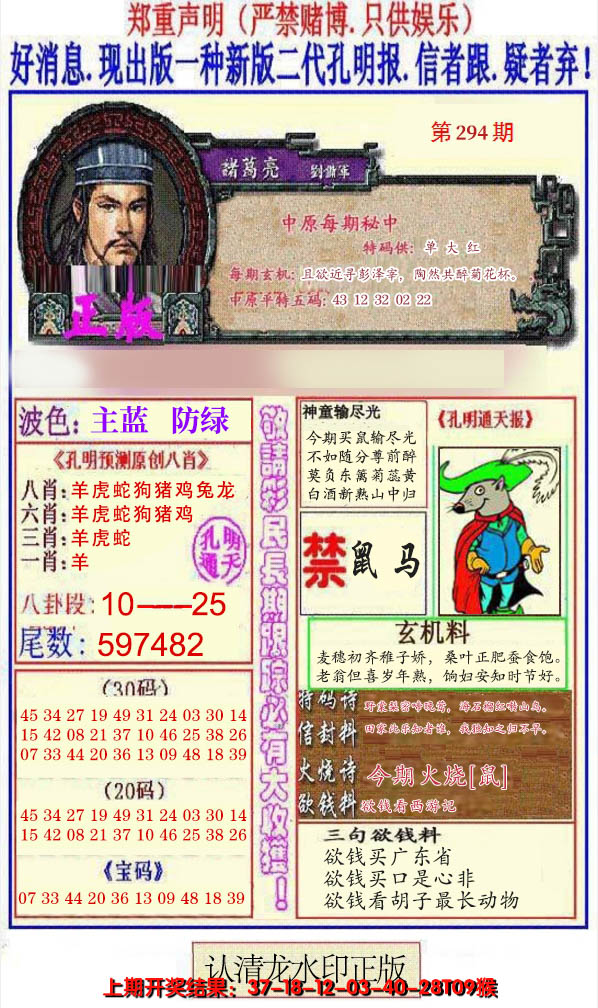 郑重声明（严禁赌博.只供娱乐）
好消息.现出版一种新版二代孔明报.信者跟.疑者弃!
第294期
諸葛亮 劉備軍
中原每期秘中
特码供：单大红
每期玄机：且欲近寻彭泽宰，陶然共醉菊花杯。
中原平特五码：43 12 32 02 22
正版
波色：主蓝 防绿
《孔明预测原创八肖》
八肖：羊虎蛇狗猪鸡兔龙
六肖：羊虎蛇狗猪鸡
三肖：羊虎蛇
一肖：羊
孔明通天
八卦段：10——25
尾数：597482
（30码）
45 34 27 19 49 31 24 03 30 14
15 42 08 21 37 10 46 25 38 26
07 33 44 20 36 13 09 48 18 39
（20码）
45 34 27 19 49 31 24 03 30 14
15 42 08 21 37 10 46 25 38 26
《宝码》
07 33 44 20 36 13 09 48 18 39
敬請彩民長期跟踪必有大收獲！
神童输尽光
今期买鼠输尽光
不如随分尊前醉
莫负东篱菊蕊黄
白酒新熟山中归
《孔明通天报》
禁 鼠 马
玄机料
麦穗初齐稚子娇，桑叶正肥蚕食饱。
老翁但喜岁年熟，饷妇安知时节好。
特码诗
野棠梨密啼晚莺，海石榴红啭山鸟。
信封料
田家此乐知者谁，我独知之归不早。
火烧诗
今期火烧[鼠]
欲钱料
欲钱看西游记
三句欲钱料
欲钱买广东省
欲钱买口是心非
欲钱看胡子最长动物
认清龙水印正版
上期开奖结果：37-18-12-03-40-28T09猴